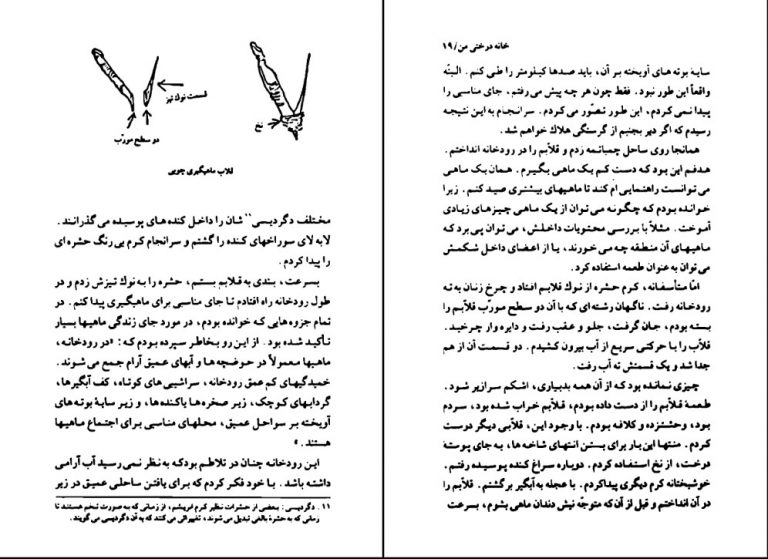 قسمت نوك تیز
دو سطح مورّب
نخ
قلاب ماهیگیری چوبی
مختلف دگردیسی¹¹ شان را داخل کنده های پوسیده می گذرانند.
لابه لای سوراخهای کنده را گشتم و سرانجام کرم بی رنگ حشره ای
را پیدا کردم.
بسرعت، بندی به قلابم بستم، حشره را به نوك تیزش زدم و در
طول رودخانه راه افتادم تا جای مناسبی برای ماهیگیری پیدا کنم. در
تمام جزوه هایی که خوانده بودم، در مورد جای زندگی ماهیها بسیار
تأکید شده بود. از این رو بخاطر سپرده بودم که: «در رودخانه،
ماهیها معمولاً در حوضچه ها و آبهای عمیق آرام جمع می شوند.
خمیدگیهای کم عمق رودخانه، سراشیبی های کوتاه، کف آبگیرها،
گردابهای کوچک، زیر صخره ها یا کنده ها، و زیر سایهٔ بوته های
آویخته بر سواحل عمیق، محلهای مناسبی برای اجتماع ماهیها
هستند.»
این رودخانه چنان در تلاطم بود که به نظر نمی رسید آب آرامی
داشته باشد. با خود فکر کردم که برای یافتن ساحلی عمیق در زیر
۱۱. دگردیسی: بعضی از حشرات نظیر کرم ابریشم، از زمانی که به صورت تخم هستند تا
زمانی که به حشرهٔ بالغی تبدیل می شوند، تغییراتی می کنند که به آن دگردیسی می گویند.
خانه درختی من/۱۹
سایهٔ بوته های آویخته بر آن، باید صدها کیلومتر را طی کنم. البتّه
واقعاً این طور نبود. فقط چون هر چه پیش می رفتم، جای مناسبی را
پیدا نمی کردم، این طور تصوّر می کردم. سرانجام به این نتیجه
رسیدم که اگر دیر بجنبم از گرسنگی هلاك خواهم شد.
همانجا روی ساحل چمباتمه زدم و قلاّبم را در رودخانه انداختم.
هدفم این بود که دست کم یک ماهی بگیرم. همان یک ماهی
می توانست راهنمایی ام کند تا ماهیهای بیشتری صید کنم. زیرا
خوانده بودم که چگونه می توان از یک ماهی چیزهای زیادی
آموخت. مثلاً با بررسی محتویات داخلش، می توان پی برد که
ماهیهای آن منطقه چه می خورند، یا از اعضای داخل شکمش
می توان به عنوان طعمه استفاده کرد.
امّا متأسفانه، کرم حشره از نوك قلابم افتاد و چرخ زنان به ته
رودخانه رفت. ناگهان رشته ای که با آن دو سطح مورّب قلاّبم را
بسته بودم، جان گرفت، جلو و عقب رفت و دایره وار چرخید.
قلاّب را با حرکتی سریع از آب بیرون کشیدم. دو قسمت آن از هم
جدا شد و یک قسمتش ته آب رفت.
چیزی نمانده بود که از آن همه بدبیاری، اشکم سرازیر شود.
طعمهٔ قلاّبم را از دست داده بودم، قلاّبم خراب شده بود، سردم
بود، وحشتزده و کلافه بودم. با وجود این، قلاّبی دیگر درست
کردم. منتها این بار برای بستن انتهای شاخه ها، به جای پوستهٔ
درخت، از نخ استفاده کردم. دوباره سراغ کنده پوسیده رفتم.
خوشبختانه کرم دیگری پیدا کردم. با عجله به آبگیر برگشتم. قلاّبم را
در آن انداختم و قبل از آن که متوجّه نیش دندان ماهی بشوم، بسرعت